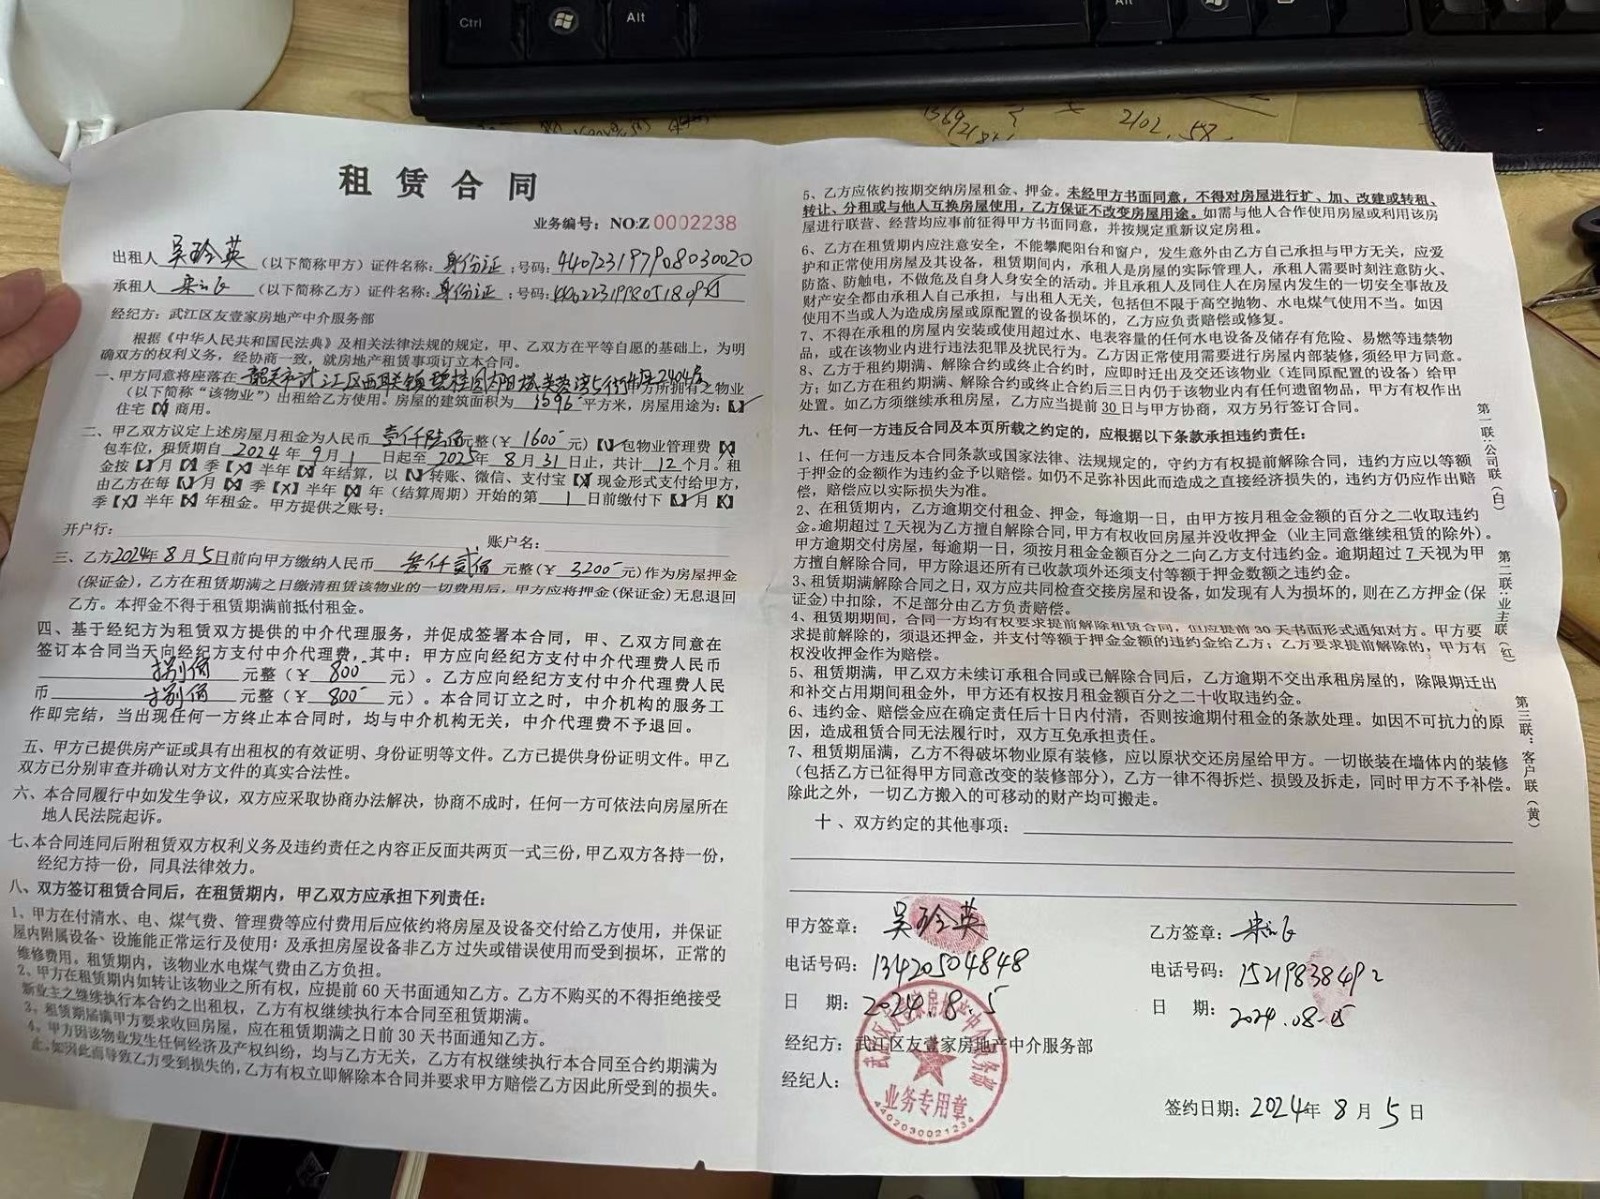 Ctrl
Alt
Alt
2102.58
租赁合同
业务编号：NO:Z 0002238
出租人 吴玲英 （以下简称甲方）证件名称：身份证 ；号码：440723197908030020
承租人 （以下简称乙方）证件名称：身份证 ；号码：
经纪方：武江区友壹家房地产中介服务部
根据《中华人民共和国民法典》及相关法律法规的规定，甲、乙双方在平等自愿的基础上，为明
确双方的权利义务，经协商一致，就房地产租赁事项订立本合同。
一、甲方同意将座落在 韶关市武江区西联镇碧桂园 2404房 甲方所拥有之物业
（以下简称“该物业”）出租给乙方使用。房屋的建筑面积为 平方米，房屋用途为：【✓】
住宅【X】商用。
二、甲乙双方议定上述房屋月租金为人民币 壹仟陆佰 元整（￥ 1600 元）【✓】包物业管理费【X】
包车位，租赁期自 2024 年 9 月 1 日起至 2025 年 8 月 31 日止，共计 12 个月。租
金按【✓】月【X】季【X】半年【X】年结算，以【✓】转账、微信、支付宝【X】现金形式支付给甲方，
由乙方在每【✓】月【X】季【X】半年【X】年（结算周期）开始的第 1 日前缴付下【✓】月【X】
季【X】半年【X】年租金。甲方提供之账号：
开户行： 账户名：
三、乙方2024年8月5日前向甲方缴纳人民币 叁仟贰佰 元整（￥ 3200 元）作为房屋押金
（保证金），乙方在租赁期满之日缴清租赁该物业的一切费用后，甲方应将押金（保证金）无息退回
乙方。本押金不得于租赁期满前抵付租金。
四、基于经纪方为租赁双方提供的中介代理服务，并促成签署本合同，甲、乙双方同意在
签订本合同当天向经纪方支付中介代理费，其中：甲方应向经纪方支付中介代理费人民币
捌佰 元整（￥ 800 元）。乙方应向经纪方支付中介代理费人民
币 捌佰 元整（￥ 800 元）。本合同订立之时，中介机构的服务工
作即完结，当出现任何一方终止本合同时，均与中介机构无关，中介代理费不予退回。
五、甲方已提供房产证或具有出租权的有效证明、身份证明等文件。乙方已提供身份证明文件。甲乙
双方已分别审查并确认对方文件的真实合法性。
六、本合同履行中如发生争议，双方应采取协商办法解决，协商不成时，任何一方可依法向房屋所在
地人民法院起诉。
七、本合同连同后附租赁双方权利义务及违约责任之内容正反面共两页一式三份，甲乙双方各持一份，
经纪方持一份，同具法律效力。
八、双方签订租赁合同后，在租赁期内，甲乙双方应承担下列责任：
1、甲方在付清水、电、煤气费、管理费等应付费用后应依约将房屋及设备交付给乙方使用，并保证
屋内附属设备、设施能正常运行及使用；及承担房屋设备非乙方过失或错误使用而受到损坏，正常的
维修费用。租赁期内，该物业水电煤气费由乙方负担。
2、甲方在租赁期内如转让该物业之所有权，应提前60天书面通知乙方。乙方不购买的不得拒绝接受
新业主之继续执行本合约之出租权，乙方有权继续执行本合同至租赁期满。
3、租赁期届满甲方要求收回房屋，应在租赁期满之日前30天书面通知乙方。
4、甲方因该物业发生任何经济及产权纠纷，均与乙方无关，乙方有权继续执行本合同至合约期满为
止。如因此而导致乙方受到损失的，乙方有权立即解除本合同并要求甲方赔偿乙方因此所受到的损失。
5、乙方应依约按期交纳房屋租金、押金。未经甲方书面同意，不得对房屋进行扩、加、改建或转租、
转让、分租或与他人互换房屋使用，乙方保证不改变房屋用途。如需与他人合作使用房屋或利用该房
屋进行联营、经营均应事前征得甲方书面同意，并按规定重新议定房租。
6、乙方在租赁期内应注意安全，不能攀爬阳台和窗户，发生意外由乙方自己承担与甲方无关，应爱
护和正常使用房屋及其设备，租赁期间内，承租人是房屋的实际管理人，承租人需要时刻注意防火、
防盗、防触电，不做危及自身人身安全的活动。并且承租人及同住人在房屋内发生的一切安全事故及
财产安全都由承租人自己承担，与出租人无关，包括但不限于高空抛物、水电煤气使用不当。如因
使用不当或人为造成房屋或原配置的设备损坏的，乙方应负责赔偿或修复。
7、不得在承租的房屋内安装或使用超过水、电表容量的任何水电设备及储存有危险、易燃等违禁物
品，或在该物业内进行违法犯罪及扰民行为。乙方因正常使用需要进行房屋内部装修，须经甲方同意。
8、乙方于租约期满、解除合约或终止合约时，应即时迁出及交还该物业（连同原配置的设备）给甲
方；如乙方在租约期满、解除合约或终止合约后三日内仍于该物业内有任何遗留物品，甲方有权作出
处置。如乙方须继续承租房屋，乙方应当提前30日与甲方协商，双方另行签订合同。
九、任何一方违反合同及本页所载之约定的，应根据以下条款承担违约责任：
1、任何一方违反本合同条款或国家法律、法规规定的，守约方有权提前解除合同，违约方应以等额
于押金的金额作为违约金予以赔偿。如仍不足弥补因此而造成之直接经济损失的，违约方仍应作出赔
偿，赔偿应以实际损失为准。
2、在租赁期内，乙方逾期交付租金、押金，每逾期一日，由甲方按月租金金额的百分之二收取违约
金。逾期超过7天视为乙方擅自解除合同，甲方有权收回房屋并没收押金（业主同意继续租赁的除外）。
甲方逾期交付房屋，每逾期一日，须按月租金金额百分之二向乙方支付违约金。逾期超过7天视为甲
方擅自解除合同，甲方除退还所有已收款项外还须支付等额于押金数额之违约金。
3、租赁期满解除合同之日，双方应共同检查交接房屋和设备，如发现有人为损坏的，则在乙方押金（保
证金）中扣除，不足部分由乙方负责赔偿。
4、租赁期期间，合同一方均有权要求提前解除租赁合同，但应提前30天书面形式通知对方。甲方要
求提前解除的，须退还押金，并支付等额于押金金额的违约金给乙方；乙方要求提前解除的，甲方有
权没收押金作为赔偿。
5、租赁期满，甲乙双方未续订承租合同或已解除合同后，乙方逾期不交出承租房屋的，除限期迁出
和补交占用期间租金外，甲方还有权按月租金额百分之二十收取违约金。
6、违约金、赔偿金应在确定责任后十日内付清，否则按逾期付租金的条款处理。如因不可抗力的原
因，造成租赁合同无法履行时，双方互免承担责任。
7、租赁期届满，乙方不得破坏物业原有装修，应以原状交还房屋给甲方。一切嵌装在墙体内的装修
（包括乙方已征得甲方同意改变的装修部分），乙方一律不得拆烂、损毁及拆走，同时甲方不予补偿。
除此之外，一切乙方搬入的可移动的财产均可搬走。
十、双方约定的其他事项：
甲方签章： 吴玲英
电话号码：13420504848
日 期：2024.8.5
经纪方：武江区友壹家房地产中介服务部
经纪人：
武江区友壹家房地产中介服务部
业务专用章
4402030021234
乙方签章：
电话号码：15219838492
日 期：2024.08.05
签约日期：2024年8月5日
第一联：公司联（白）
第二联：业主联（红）
第三联：客户联（黄）